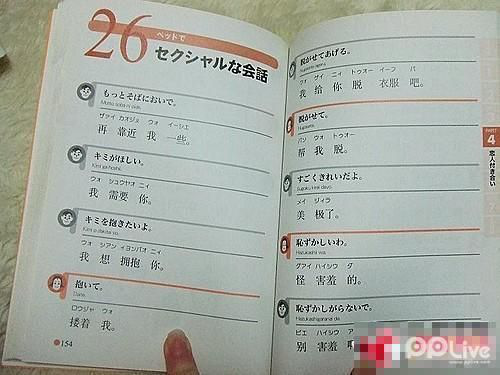 26
ベッドで
セクシャルな会話
もっとそばにおいで。
Motto soba ni oide.
ザァイ カオジェ ウォ イーシエ
再 靠近 我 一些。
キミがほしい。
Kimi ga hoshii.
ウォ シュウヤオ ニィ
我 需要 你。
キミを抱きたいよ。
Kimi o dakitai yo.
ウォ シアン イョンバオ ニィ
我 想 拥抱 你。
抱いて。
Daite.
ロウジャ ウォ
搂着 我。
154
脱がせてあげる。
Nugasete ageru.
ウォ ゲイ ニィ トゥオー イーフ バ
我 给 你 脱 衣服 吧。
脱がせて。
Nugasete.
バン ウォ トゥオー
帮 我 脱。
すごくきれいだよ。
Sugoku kirei dayo.
メイ ジィラ
美 极了。
恥ずかしいわ。
Hazukashii wa.
グアイ ハイシウ ダ
怪 害羞 的。
恥ずかしがらないで。
Hazukashigaranai de.
ビエ ハイシウ ア
别 害羞
PART
4
恋人付き合い
ppLive